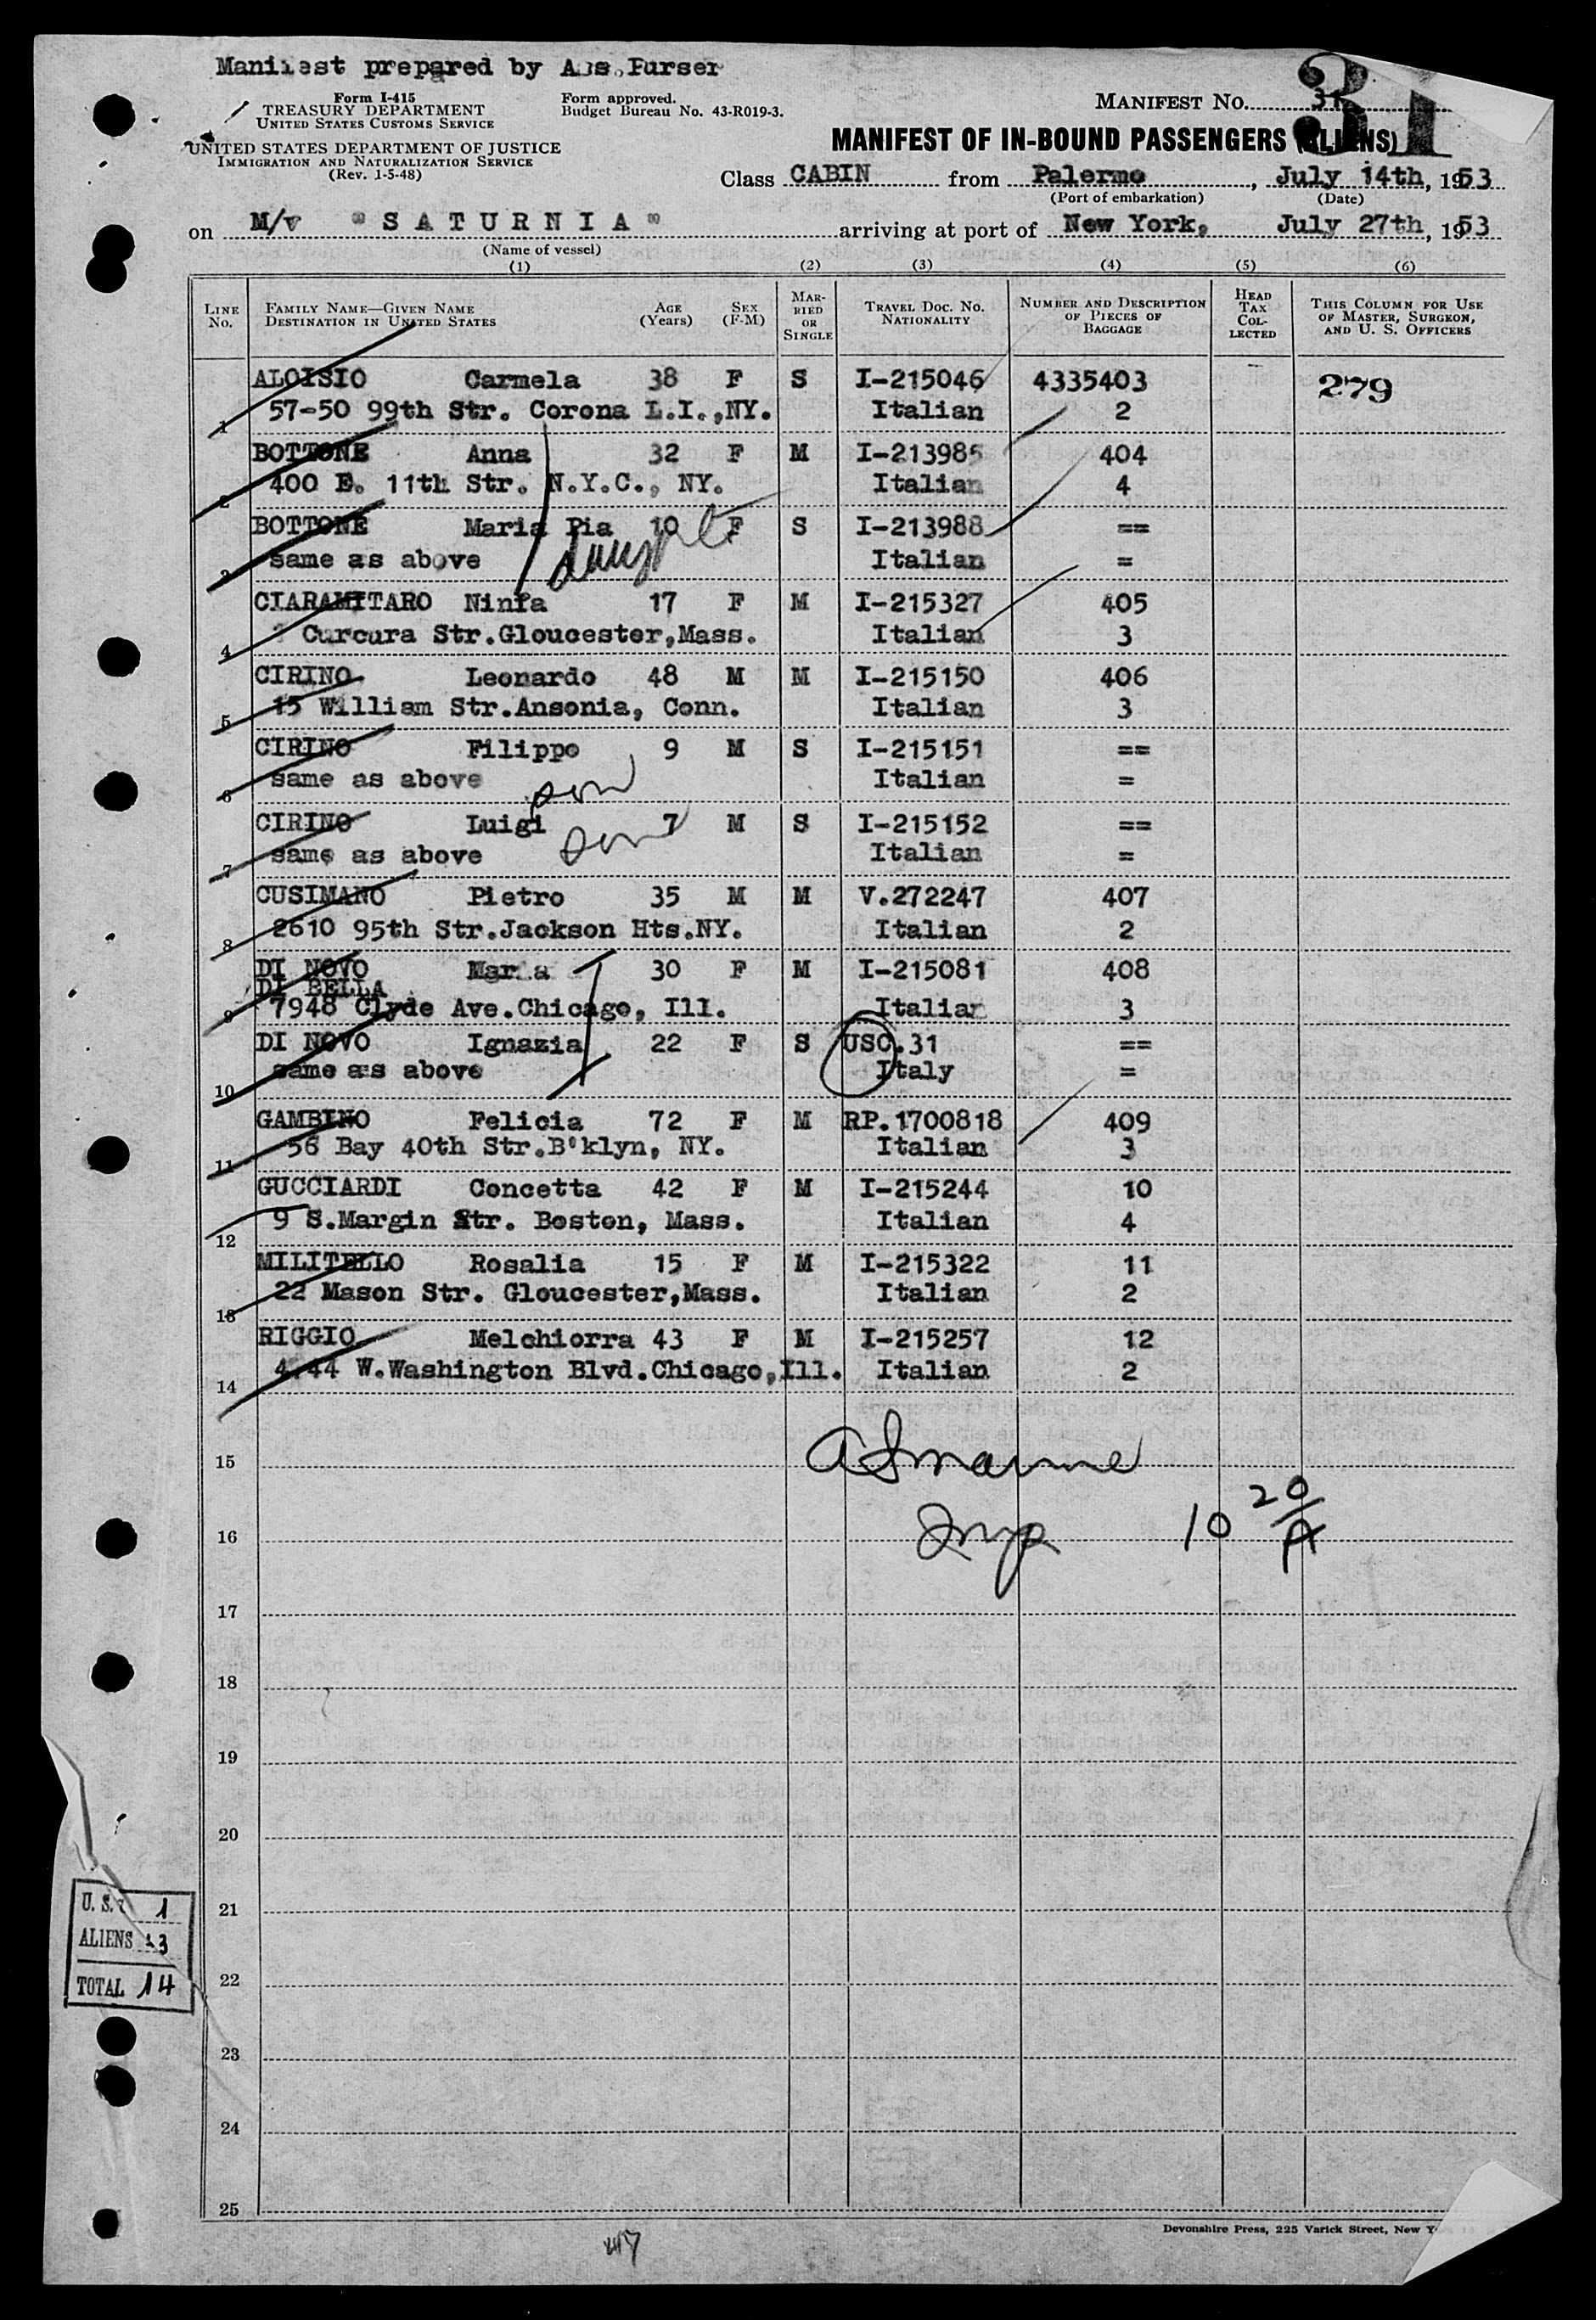 Manifest prepared by Ass.Purser
Form I-415
TREASURY DEPARTMENT
UNITED STATES CUSTOMS SERVICE
UNITED STATES DEPARTMENT OF JUSTICE
IMMIGRATION AND NATURALIZATION SERVICE
(Rev. 1-5-48)
Form approved.
Budget Bureau No. 43-R019-3.
31
MANIFEST NO. 31
MANIFEST OF IN-BOUND PASSENGERS (ALIENS)
Class CABIN from Palermo, July 14th, 1953
(Port of embarkation) (Date)
on M/v "SATURNIA" arriving at port of New York, July 27th, 1953
(Name of vessel)
(1) (2) (3) (4) (5) (6)
LINE No. FAMILY NAME—GIVEN NAME DESTINATION IN UNITED STATES AGE (Years) SEX (F-M) MARRIED OR SINGLE TRAVEL DOC. NO. NATIONALITY NUMBER AND DESCRIPTION OF PIECES OF BAGGAGE HEAD TAX COLLECTED THIS COLUMN FOR USE OF MASTER, SURGEON, AND U. S. OFFICERS
ALOISIO Carmela 38 F S I-215046 4335403 279
1 57-50 99th Str. Corona L.I.,NY. Italian 2
BOTTONE Anna 32 F M I-213985 404
2 400 E. 11th Str. N.Y.C., NY. Italian 4
BOTTONE Maria Pia 10 F S I-213988 ==
3 same as above Italian =
CIARAMITARO Ninfa 17 F M I-215327 405
4 Curcura Str.Gloucester,Mass. Italian 3
CIRINO Leonardo 48 M M I-215150 406
5 15 William Str.Ansonia, Conn. Italian 3
CIRINO Filippo 9 M S I-215151 ==
6 same as above son Italian =
CIRINO Luigi 7 M S I-215152 ==
7 same as above son Italian =
CUSIMANO Pietro 35 M M V.272247 407
8 2610 95th Str.Jackson Hts.NY. Italian 2
DI NOVO Maria 30 F M I-215081 408
DI BELLA
9 7948 Clyde Ave.Chicago, Ill. Italian 3
DI NOVO Ignazia 22 F S USC.31 ==
10 same as above Italy =
GAMBINO Felicia 72 F M RP.1700818 409
11 56 Bay 40th Str.B'klyn, NY. Italian 3
GUCCIARDI Concetta 42 F M I-215244 10
12 9 S.Margin Str. Boston, Mass. Italian 4
MILITELLO Rosalia 15 F M I-215322 11
13 22 Mason Str. Gloucester,Mass. Italian 2
RIGGIO Melchiorra 43 F M I-215257 12
14 4144 W.Washington Blvd.Chicago,Ill. Italian 2
15
16 10 20/A
17
18
19
20
21
22
23
24
25
U.S. 1
ALIENS 13
TOTAL 14
Devonshire Press, 225 Varick Street, New